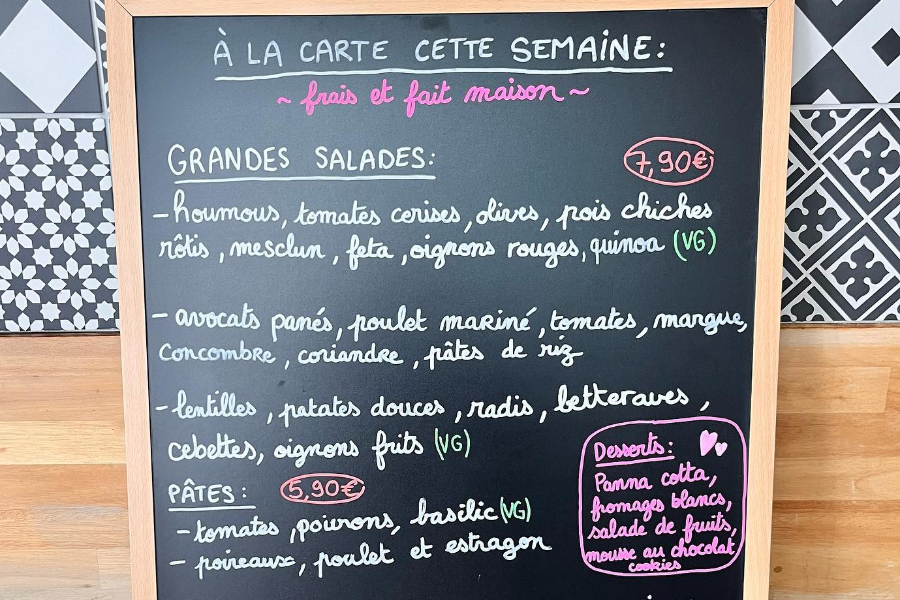 À LA CARTE CETTE SEMAINE:
~ frais et fait maison ~
GRANDES SALADES:
7,90€
- houmous, tomates cerises, olives, pois chiches
rôtis, mesclun, feta, oignons rouges, quinoa (VG)
- avocats panés, poulet mariné, tomates, mangue,
concombre, coriandre, pâtes de riz
- lentilles, patates douces, radis, betteraves,
cebettes, oignons frits (VG)
PÂTES:
5,90€
- tomates, poivrons, basilic (VG)
- poireaux, poulet et estragon
Desserts:
Panna cotta,
fromages blancs,
salade de fruits,
mousse au chocolat
cookies